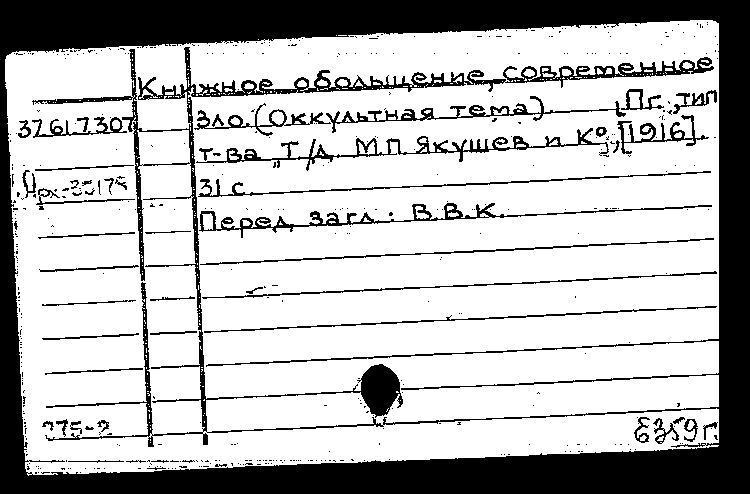 Книжное обольщение, современное
зло. (Оккультная тема). [Пг., тип
37.61.7.307.
т-ва „Т/Д. М.П. Якушев и К°], [1916].
Арх.-35175
31 с.
Перед загл.: В.В.К.
375-2
Б359г.